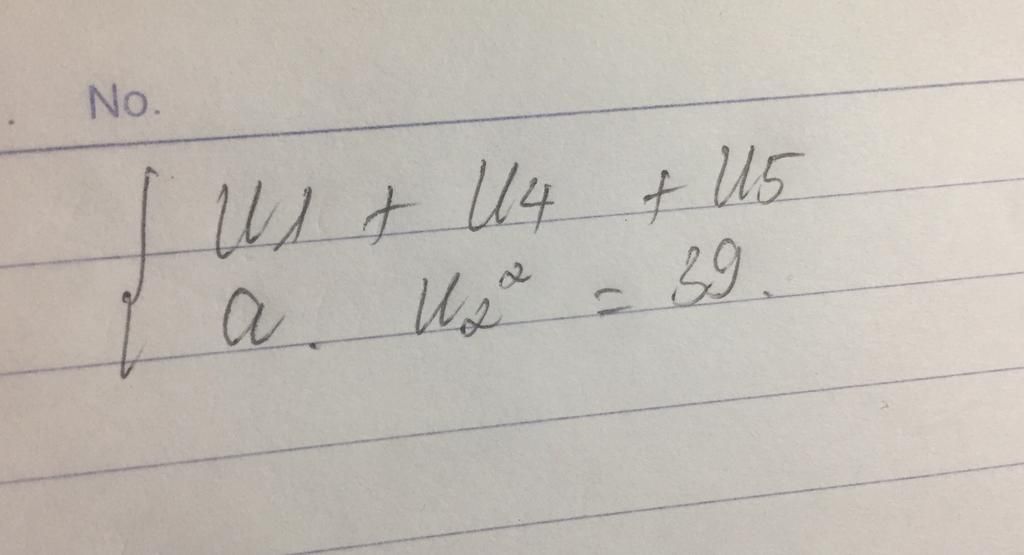 No.
U1 + U4 + U5
a. U₂² = 39.